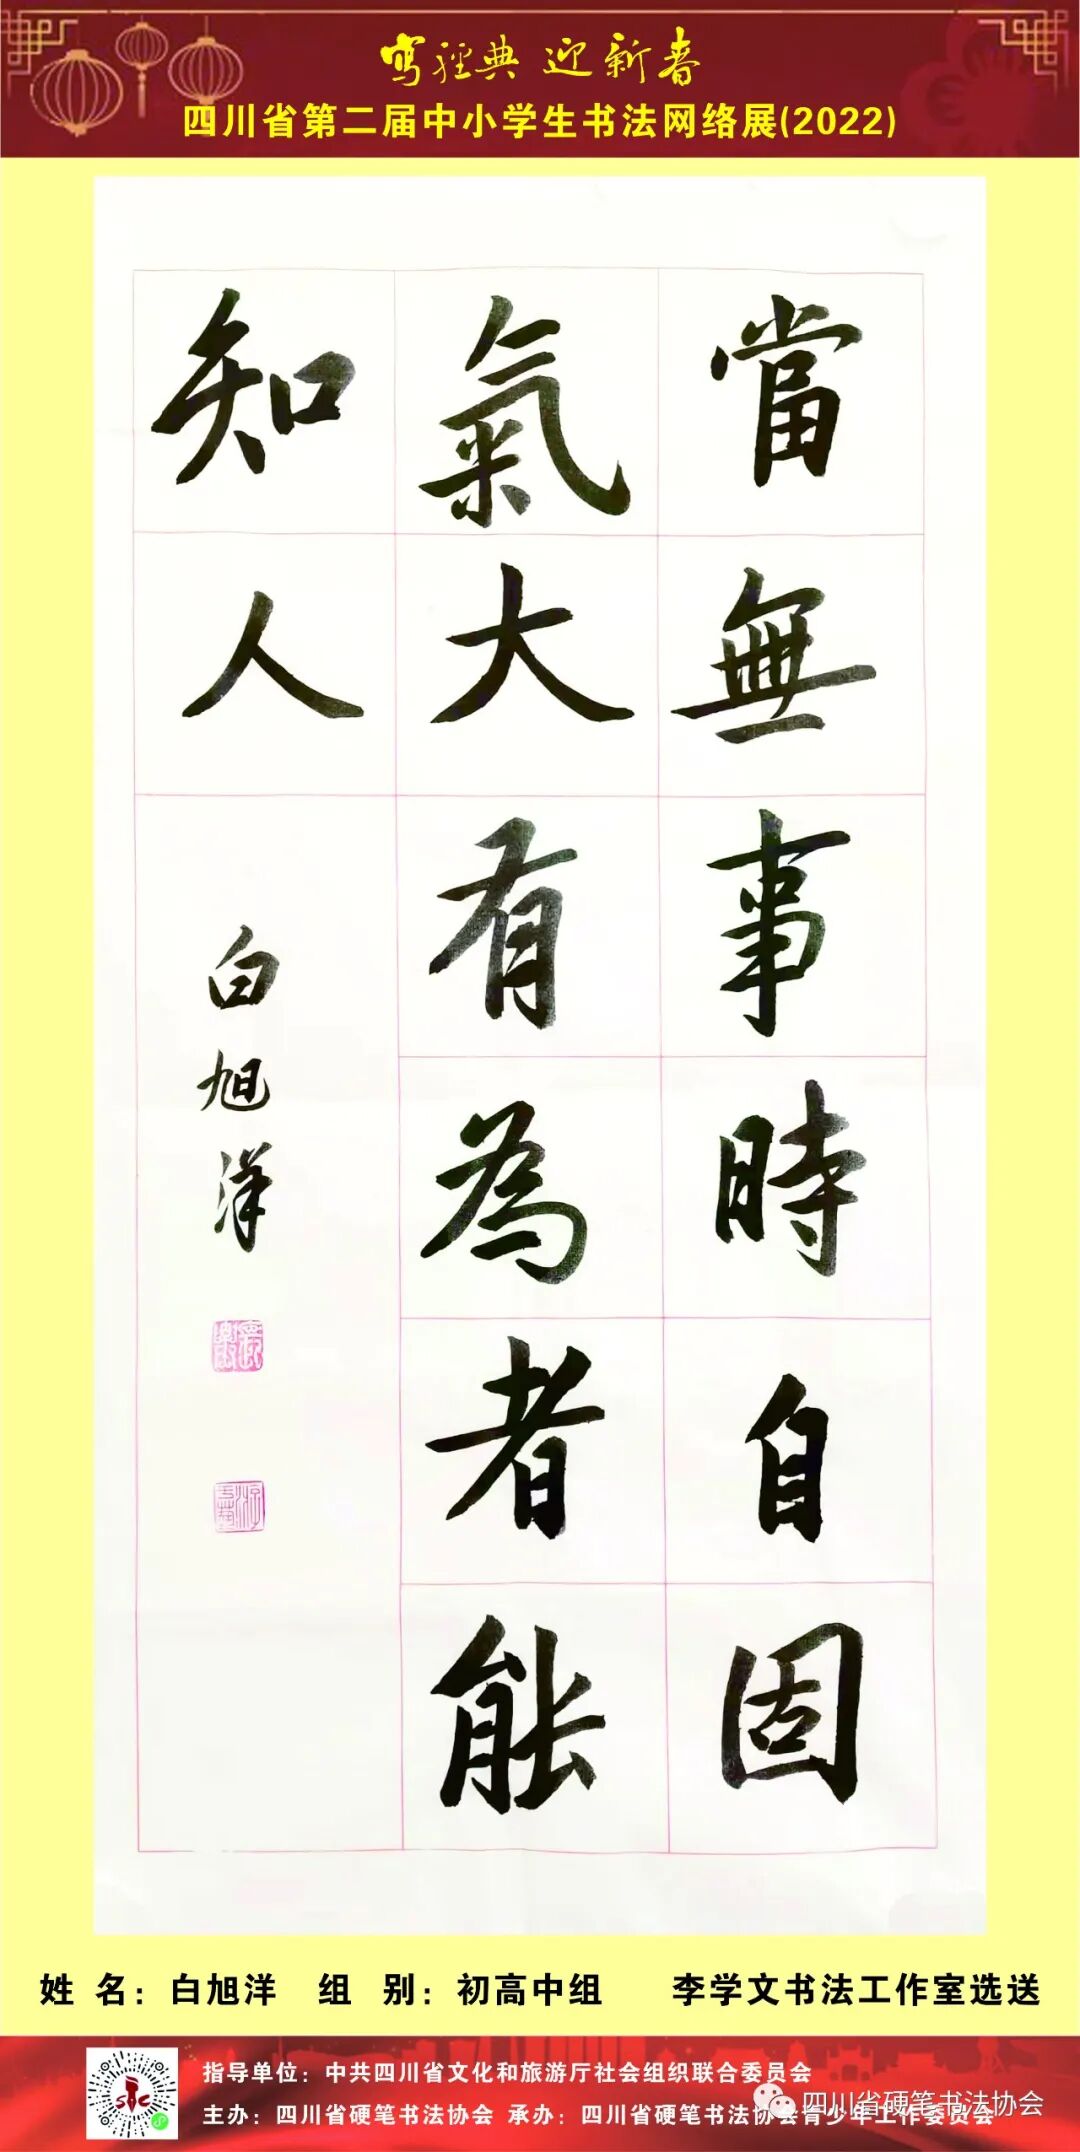 写経典 迎新春
四川省第二届中小学生书法网络展(2022)
當無事時自固
氣大有為者能
知人
白旭洋
姓 名：白旭洋 组 别：初高中组 李学文书法工作室选送
指导单位：中共四川省文化和旅游厅社会组织联合委员会
主办：四川省硬笔书法协会 承办：四川省硬笔书法协会青少年工作委员会
四川省硬笔书法协会